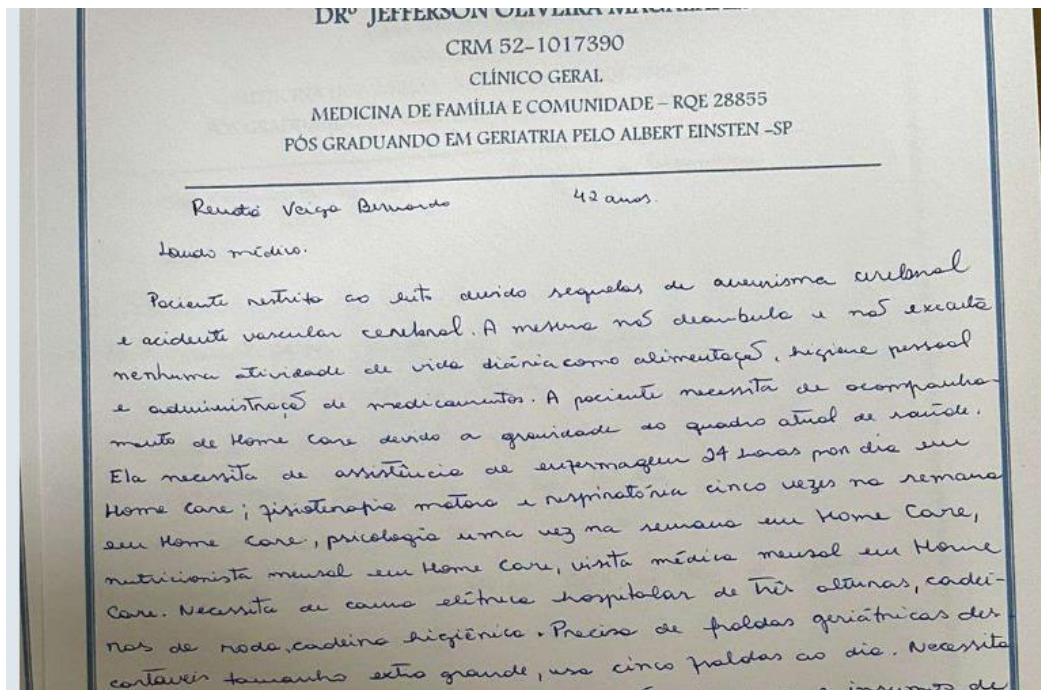 DRº JEFFERSON OLIVEIRA
CRM 52-1017390
CLÍNICO GERAL
MEDICINA DE FAMÍLIA E COMUNIDADE – RQE 28855
PÓS GRADUANDO EM GERIATRIA PELO ALBERT EINSTEN –SP
Renata Veiga Bernardo 42 anos.
Laudo médico.
Paciente restrita ao leito devido sequelas de aneurisma cerebral
e acidente vascular cerebral. A mesma não deambula e não executa
nenhuma atividade de vida diária como alimentação, higiene pessoal
e administração de medicamentos. A paciente necessita de acompanha-
mento de Home Care devido a gravidade do quadro atual de saúde.
Ela necessita de assistência de enfermagem 24 horas por dia em
Home Care; fisioterapia motora e respiratória cinco vezes na semana
em Home Care, psicologia uma vez na semana em Home Care,
nutricionista mensal em Home Care, visita médica mensal em Home
Care. Necessita de cama elétrica hospitalar de três alturas, cadei-
ras de roda, cadeira higiênica. Precisa de fraldas geriátricas des
cartáveis tamanho extra grande, usa cinco fraldas ao dia. Necessita
insumos de